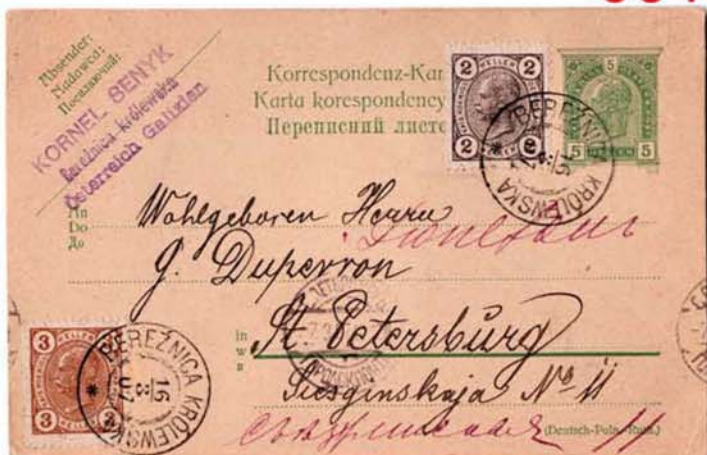 Absender:
Nadawca:
Посилаючий:
KORNEL SENYK
Bereznica królewska
Österreich Galizien
Korrespondenz-Kar
Karta korespondency
Переписний листо
2 HELLER 2
2
5
5 5
BEREŹNICA KRÓLEWSKA
16
An
Do
До
Wohlgeboren Herrn
G. Duperron
in
w
в
St Petersburg
Siesginskaja No 11
11
(Deutsch-Poln.-Ruth.)
3 3
HELLER
BEREŹNICA KRÓLEWSKA
16
8
07